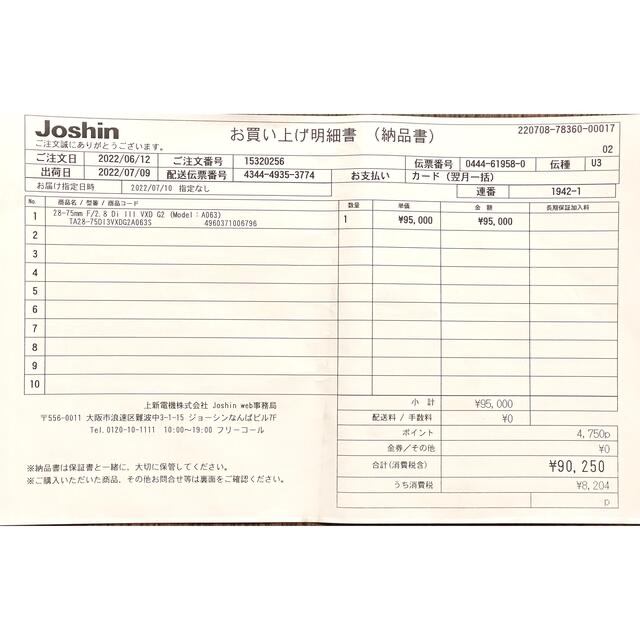 Joshin
ご注文誠にありがとうございます。
お買い上げ明細書 (納品書)
220708-78360-00017
02
ご注文日 2022/06/12 ご注文番号 15320256 伝票番号 0444-61958-0 伝種 U3
出荷日 2022/07/09 配送伝票番号 4344-4935-3774 お支払い カード（翌月一括）
お届け指定日時 2022/07/10 指定なし 連番 1942-1
No. 商品名 / 型番 / 商品コード 数量 単価 金額 長期保証加入料
1 28-75mm F/2.8 Di III VXD G2 (Model：A063) 1 ¥95,000 ¥95,000
TA28-75DI3VXDG2A063S 4960371006796
2
3
4
5
6
7
8
9
10
小計 ¥95,000
上新電機株式会社 Joshin web事務局
〒556-0011 大阪市浪速区難波中3-1-15 ジョーシンなんばビル7F
Tel.0120-10-1111 10:00～19:00 フリーコール
配送料 / 手数料 ¥0
ポイント 4,750p
金券/その他 ¥0
合計(消費税含) ¥90,250
うち消費税 ¥8,204
p
※納品書は保証書と一緒に、大切に保管してください。
※ご購入いただいた商品、その他お問合せ等は裏面をご確認ください。